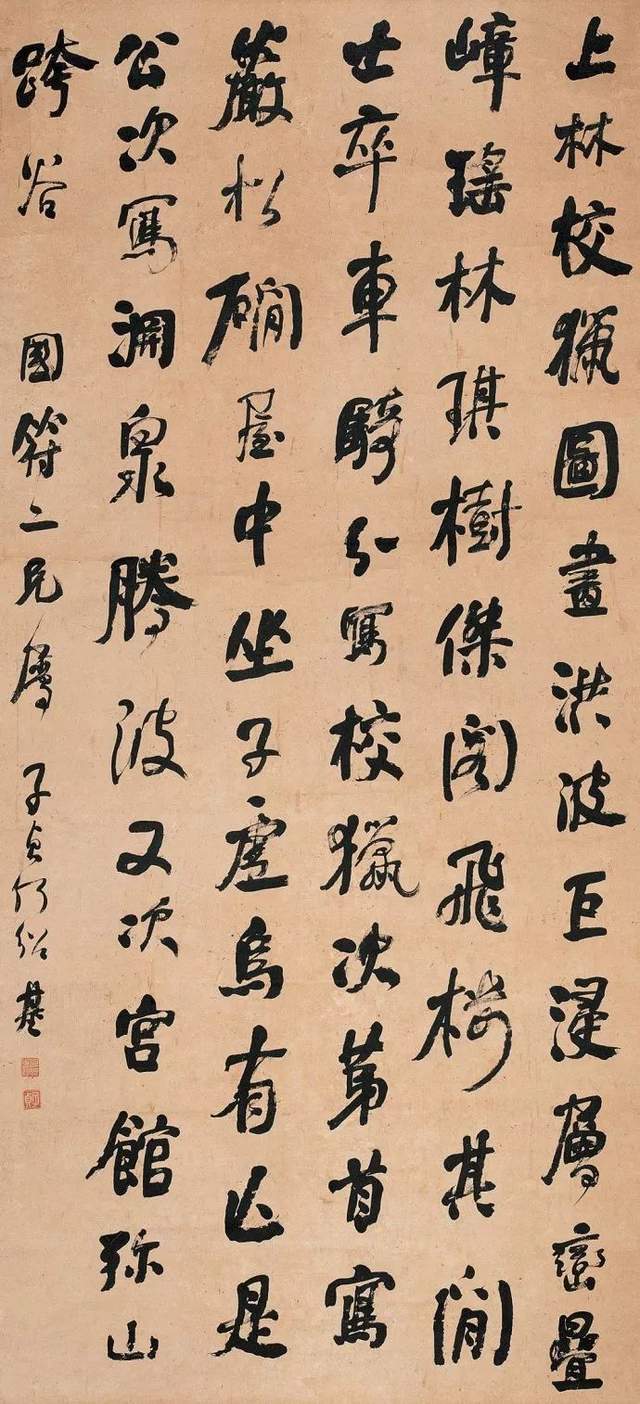 上林校獵圖畫洪波巨浸層巒疊
嶂瑤林琪樹傑閣飛樓其間
士卒車騎分寫校獵次第首寫
巖松磵屋中坐子虛烏有亡是
公次寫淵泉騰波又次宮館彌山
跨谷 國符二兄屬 子貞何紹基